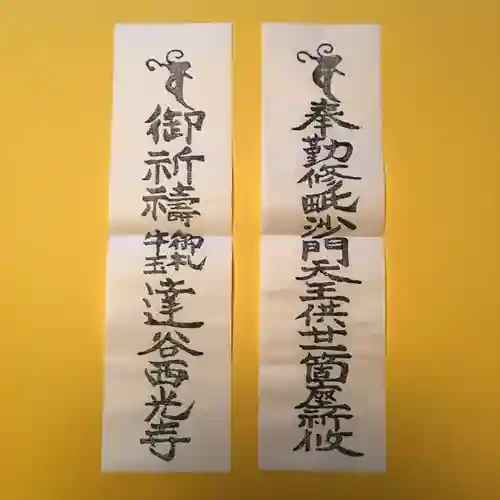 奉勤修毗沙門天王供廿一箇座祈攸
御祈祷
御札
牛玉
達谷西光寺